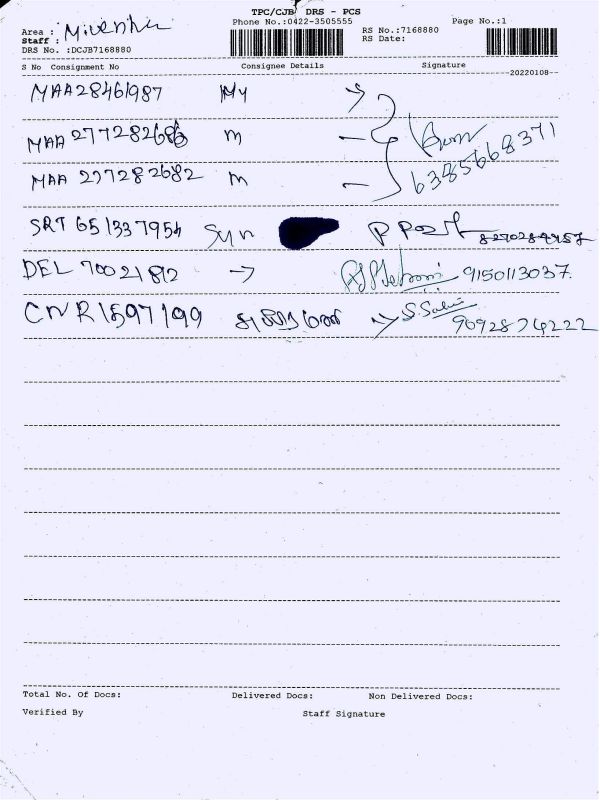 TPC/CJB DRS - PCS
Phone No.:0422-3505555
Page No.:1
Area :
Staff :
RS No.:7168880
RS Date:
DRS No. :DCJB7168880
S No Consignment No Consignee Details Signature
20220108
MAA28461987 My
MAA 277282686 m
6385668371
MAA 277282682 m
SRT 651337954 Syn
DEL 70021812 9150113037.
CNR1597199
9092874222
Total No. Of Docs: Delivered Docs: Non Delivered Docs:
Verified By Staff Signature